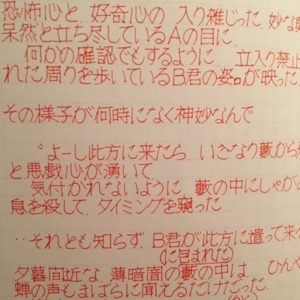 恐怖心と 好奇心の 入り雑じった 妙な
呆然と立ち尽しているAの目に
何かの確認でもするように、立入り禁止
れた周りを歩いているB君の姿が映った
その様子が何時になく神妙なんで
〝よーし此方に来たら、いきなり藪から
と悪戯心が湧いて
気付かれないように、藪の中にしゃが
息を殺して、タイミングを窺った
‥それとも知らず、B君が此方に遣って来
(に包まれた)
夕暮間近な、薄暗闇の藪の中は、ひんや
蝉の声もまばらに聞えるだけだった